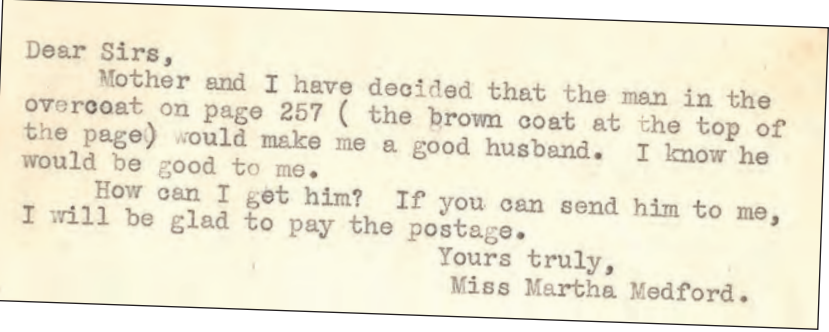 Dear Sirs,
Mother and I have decided that the man in the
overcoat on page 257 ( the brown coat at the top of
the page) would make me a good husband. I know he
would be good to me.
How can I get him? If you can send him to me,
I will be glad to pay the postage.
Yours truly,
Miss Martha Medford.